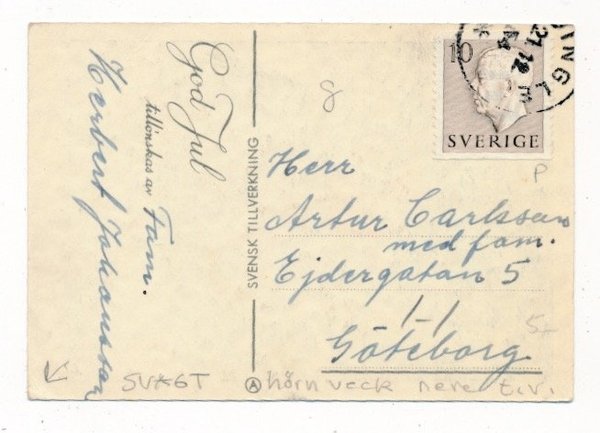 God Jul
tillönskas av Fam.
Herbert Johansson
SVENSK TILLVERKNING
8
10
SVERIGE
INGL
21 12
P
Herr
Artur Carlsson
med fam.
Ejdergatan 5
Göteborg
5-
SVAGT
A
hörnveck nere t.v.